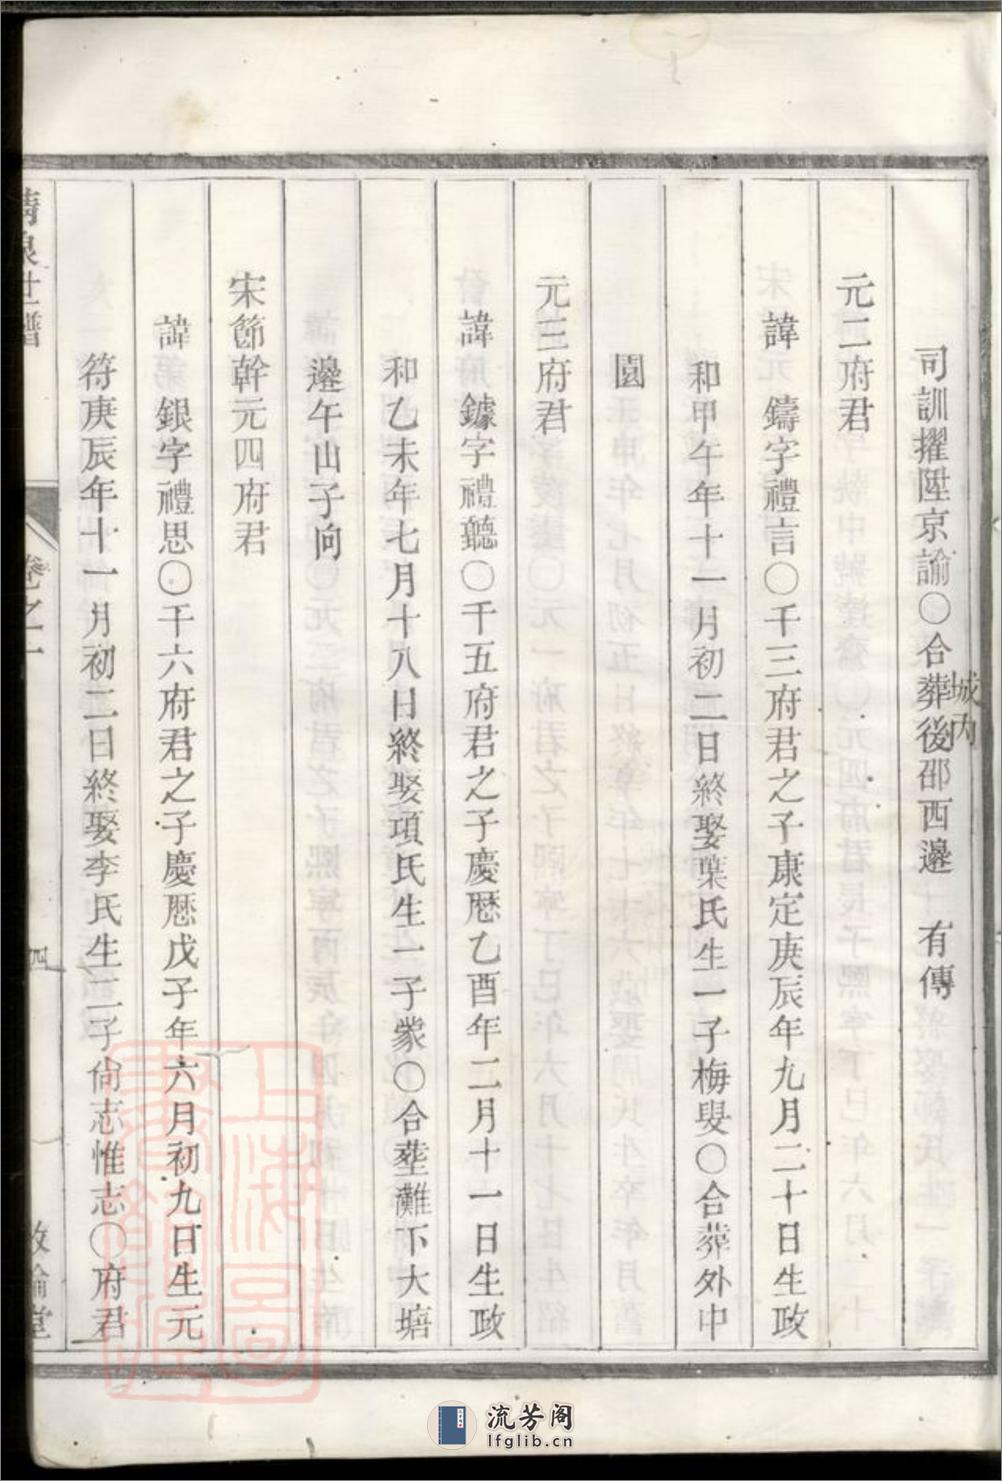 司訓擢陞京諭〇合葬後邵西邊　有傳
城内
元二府君
諱　鑄字禮言〇千三府君之子康定庚辰年九月二十日生政
和甲午年十一月初二日終娶葉氏生一子梅叟〇合葬外中
園
元三府君
諱　鐻字禮聽〇千五府君之子慶曆乙酉年二月十一日生政
和乙未年七月十八日終娶項氏生一子蒙〇合塟灘下大塘
邊午山子向
宋節幹元四府君
諱　銀字禮思〇千六府君之子慶曆戊子年六月初九日生元
符庚辰年十一月初二日終娶李氏生二子尙志惟志〇府君
泉世譜
卷之一
四
敦倫堂
流芳阁
lfglib.cn